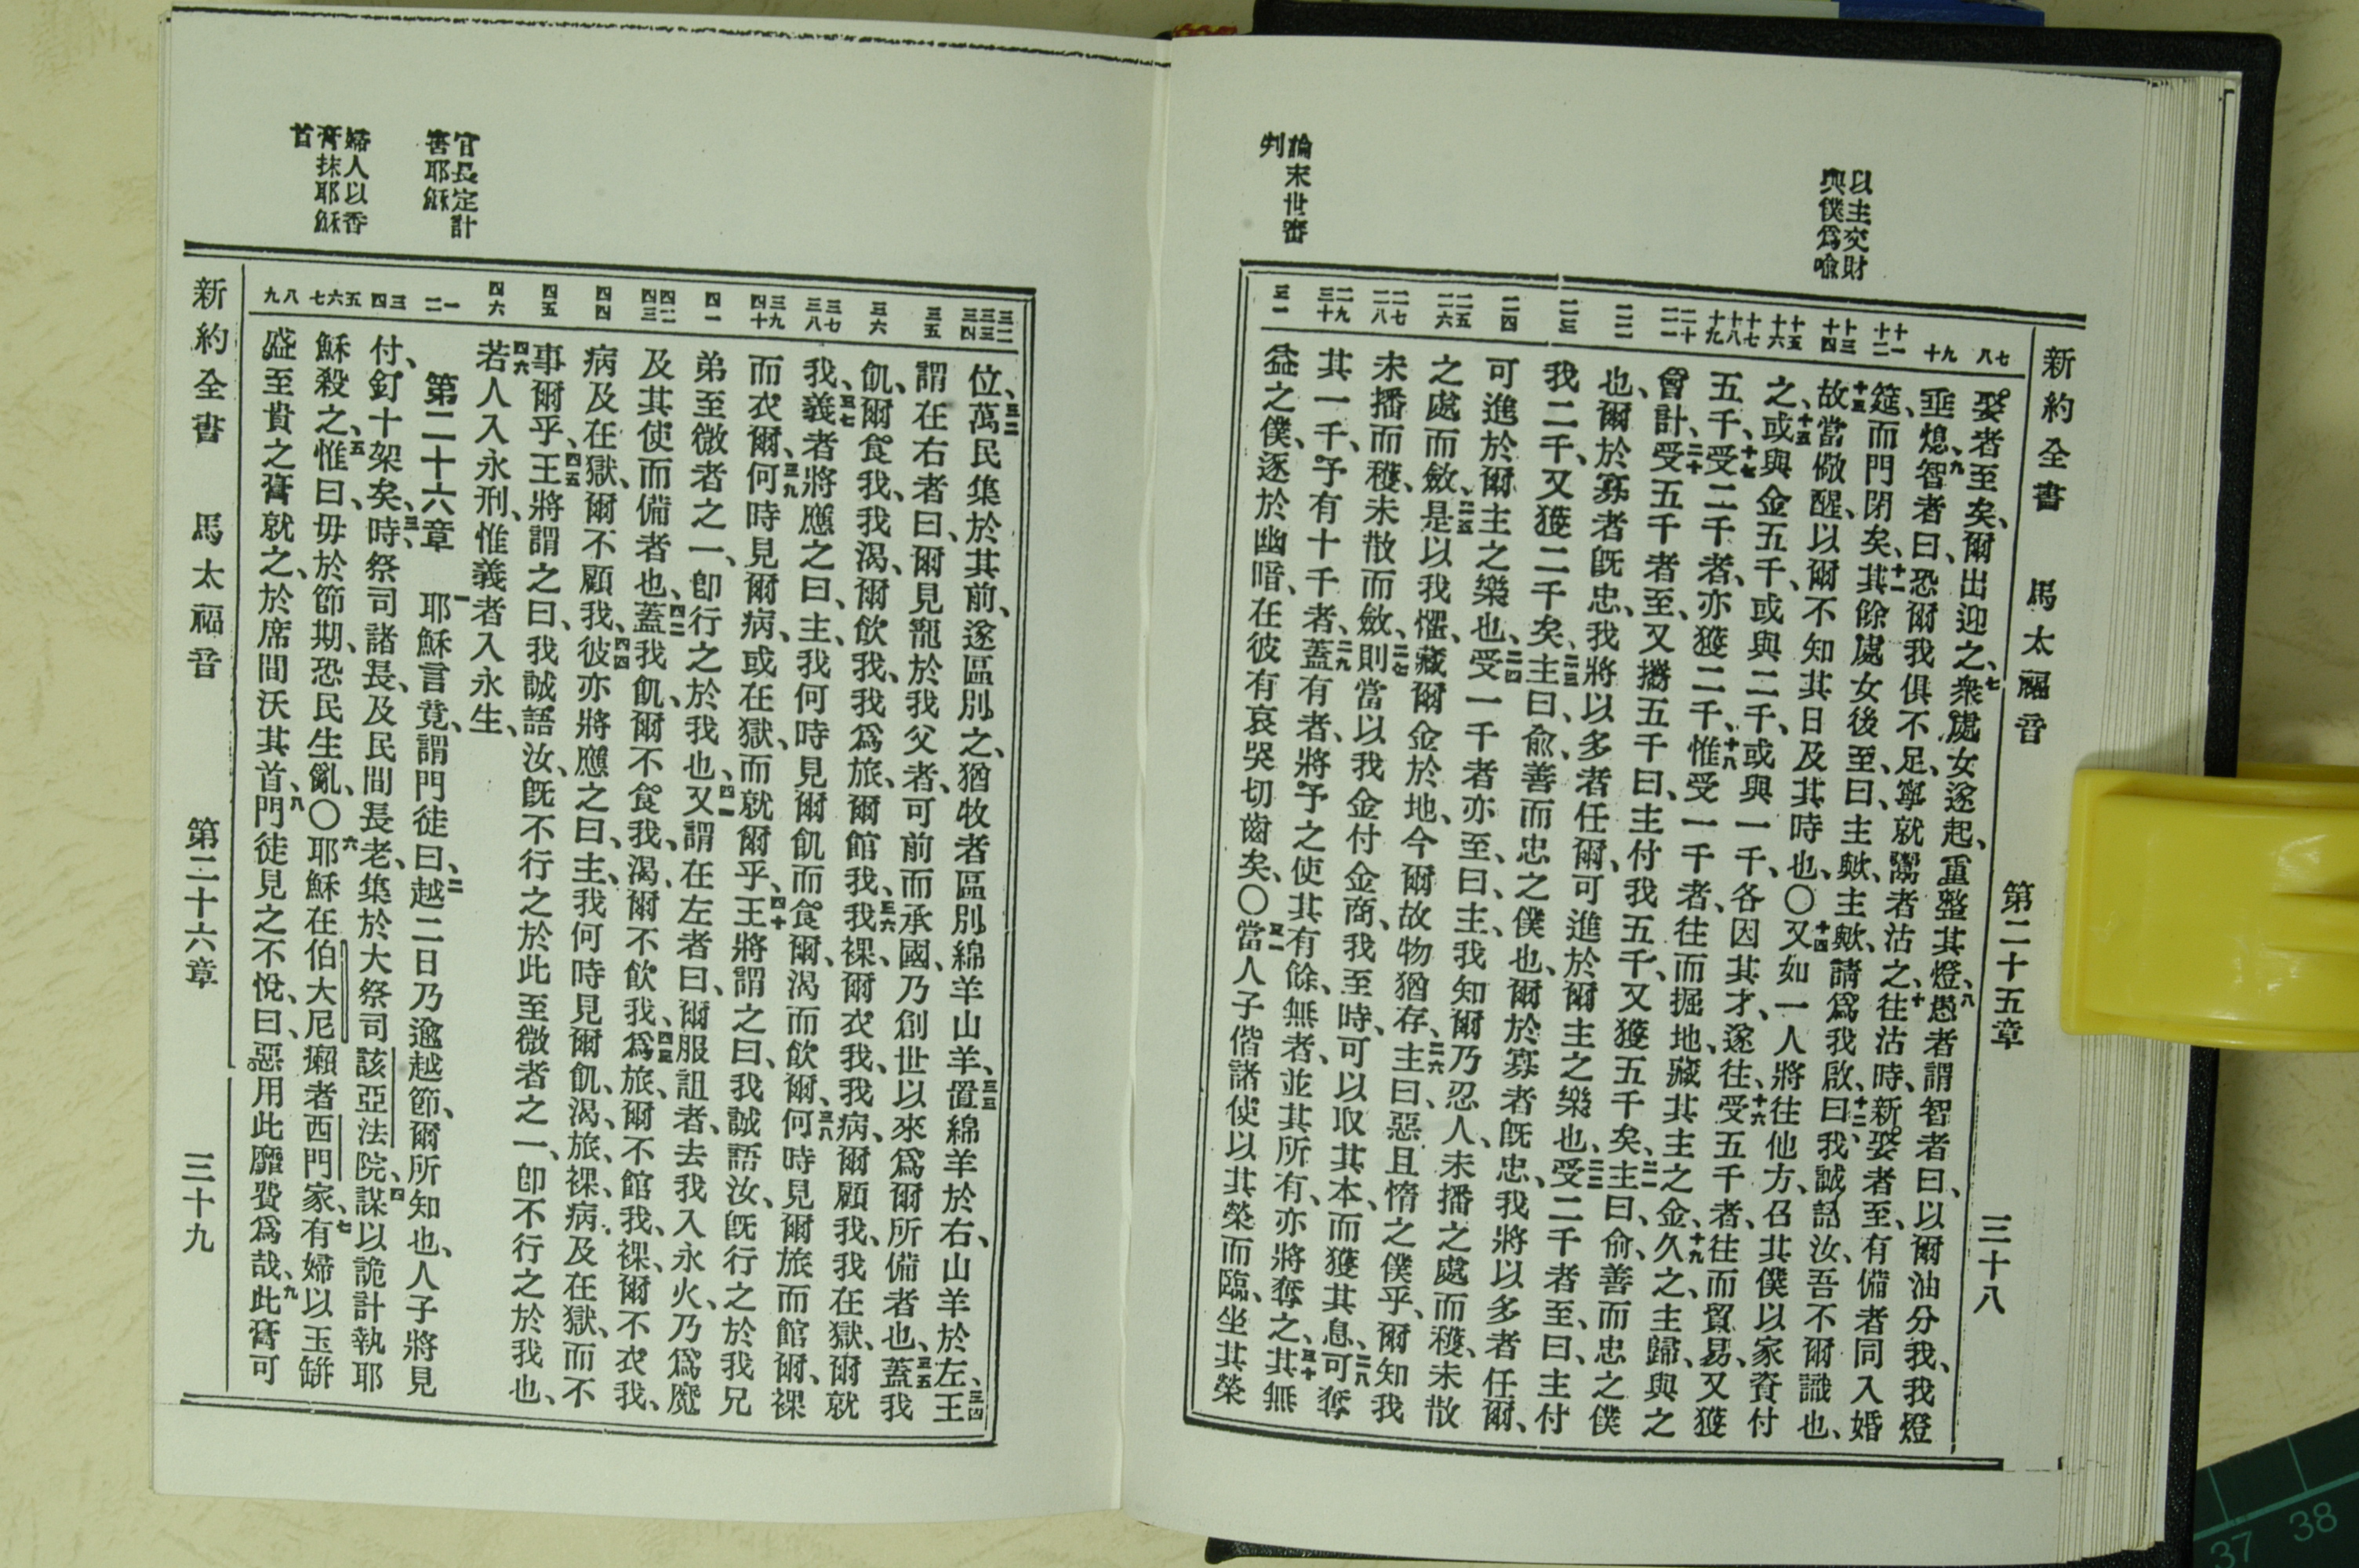 新約全書 馬太福音 第二十五章 三十八
以主交財
與僕爲喻
論末世審
判
七 八 九 十 十一 十二 十三 十四 十五 十六 十七 十八 十九 二十 二一 二二 二三 二四 二五 二六 二七 二八 二九 三十 三一
娶者至矣、爾出迎之、七衆處女遂起、重整其燈、八愚者謂智者曰、以爾油分我、我燈
垂熄、九智者曰、恐爾我俱不足、寧就鬻者沽之、十往沽時、新娶者至、有備者同入婚
筵、而門閉矣、十一其餘處女後至、曰、主歟、主歟、請爲我啟、十二曰、我誠語汝、吾不爾識也、
十三故當儆醒、以爾不知其日及其時也、〇十四又如一人將往他方、召其僕以家資付
之、十五或與金五千、或與二千、或與一千、各因其才、遂往、十六受五千者、往而貿易、又獲
五千、十七受二千者、亦獲二千、十八惟受一千者、往而掘地、藏其主之金、十九久之、主歸、與之
會計、二十受五千者至、又攜五千曰、主付我五千、又獲五千矣、二一主曰、俞、善而忠之僕
也、爾於寡者旣忠、我將以多者任爾、可進於爾主之樂也、二二受二千者至、曰、主付
我二千、又獲二千矣、二三主曰、俞、善而忠之僕也、爾於寡者旣忠、我將以多者任爾、
可進於爾主之樂也、二四受一千者亦至、曰、主、我知爾乃忍人、未播之處而穫、未散
之處而斂、二五是以我懼、藏爾金於地、今爾故物猶存、二六主曰、惡且惰之僕乎、爾知我
未播而穫、未散而斂、二七則當以我金付金商、我至時、可以取其本、而獲其息、二八可奪
其一千、予有十千者、二九蓋有者、將予之使其有餘、無者、並其所有、亦將奪之、三十其無
益之僕、逐於幽暗、在彼有哀哭切齒矣、〇三一當人子偕諸使以其榮而臨、坐其榮
官長定計
害耶穌
婦人以香
膏抹耶穌
首
三二 三三 三四 三五 三六 三七 三八 三九 四十 四一 四二 四三 四四 四五 四六 一 二 三 四 五 六 七 八 九
位、三二萬民集於其前、遂區別之、猶牧者區別綿羊山羊、三三置綿羊於右、山羊於左、三四王
謂在右者曰、爾見寵於我父者、可前而承國、乃創世以來、爲爾所備者也、三五蓋我
飢、爾食我、我渴、爾飲我、我爲旅、爾館我、三六我裸、爾衣我、我病、爾顧我、我在獄、爾就
我、三七義者將應之曰、主、我何時見爾飢而食爾、渴而飲爾、三八何時見爾旅而館爾、裸
而衣爾、三九何時見爾病、或在獄、而就爾乎、四十王將謂之曰、我誠語汝、旣行之於我兄
弟至微者之一、卽行之於我也、四一又謂在左者曰、爾服詛者、去我入永火、乃爲魔
及其使而備者也、四二蓋我飢、爾不食我、渴、爾不飲我、四三爲旅、爾不館我、裸、爾不衣我、
病及在獄、爾不顧我、四四彼亦將應之曰、主、我何時見爾飢、渴、旅、裸、病、及在獄、而不
事爾乎、四五王將謂之曰、我誠語汝、旣不行之於此至微者之一、卽不行之於我也、
四六若人入永刑、惟義者入永生、
第二十六章 一耶穌言竟、謂門徒曰、二越二日乃逾越節、爾所知也、人子將見
付、釘十架矣、三時、祭司諸長、及民間長老、集於大祭司該亞法院、四謀以詭計執耶
穌殺之、五惟曰、毋於節期、恐民生亂、〇六耶穌在伯大尼癩者西門家、七有婦以玉缾
盛至貴之膏就之、於席間沃其首、八門徒見之不悅、曰、惡用此靡費爲哉、九此膏可
新約全書 馬太福音 第二十六章 三十九
37 38